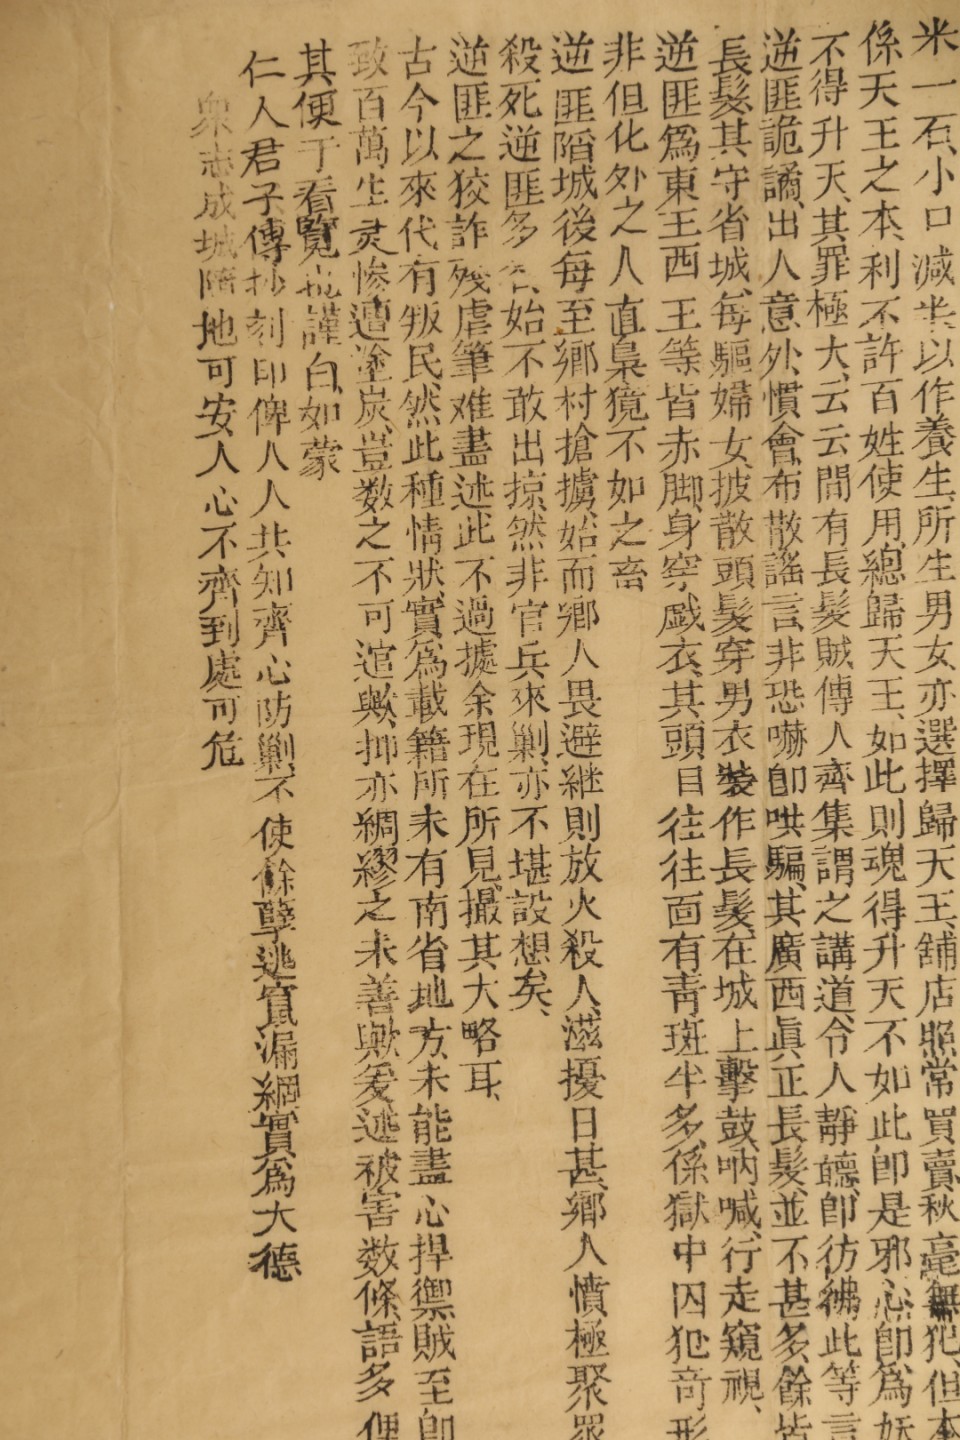 米一石、小口減半以作養生、所生男女亦選擇歸天王、舖店照常買賣、秋毫無犯、但本
係天王之本利不許百姓使用、總歸天王、如此則魂得升天不如此卽是邪心卽爲妖
不得升天、其罪極大、云云間有長髮賊傳人齊集謂之講道、令人靜聽、卽彷彿此等言
逆匪詭譎、出人意外、慣會布散謠言、非恐嚇卽哄騙、其廣西眞正長髮、並不甚多、餘皆
長髮、其守省城、每驅婦女、披散頭髮穿男衣裝作長髮、在城上擊鼓吶喊、行走窺視、
逆匪爲東王西王等皆赤脚、身穿戯衣、其頭目往往面有靑斑半多、係獄中囚犯奇形
非但化外之人直梟獍不如之畜
逆匪陷城後每至鄉村搶擄、始而鄉人畏避継則放火殺人、滋擾日甚、鄉人憤極聚眾
殺死逆匪多 始不敢出掠、然非官兵來剿、亦不堪設想矣、
逆匪之狡詐殘虐筆难盡述、此不過據余現在所見、撮其大略耳、
古今以來代有叛民、然此種情狀、實爲載籍所未有南省地方、未能盡心捍禦賊至卽
致百萬生灵慘遭塗炭、豈数之不可逭歟、抑亦綢繆之未善歟、爰述被害数條、語多俚
其便于看覽 謹白、如蒙
仁人君子、傳抄刻印俾人人共知齊心防剿、不使餘孽逃竄漏網、實爲大德
衆志成城隨地可安、人心不齊到處可危